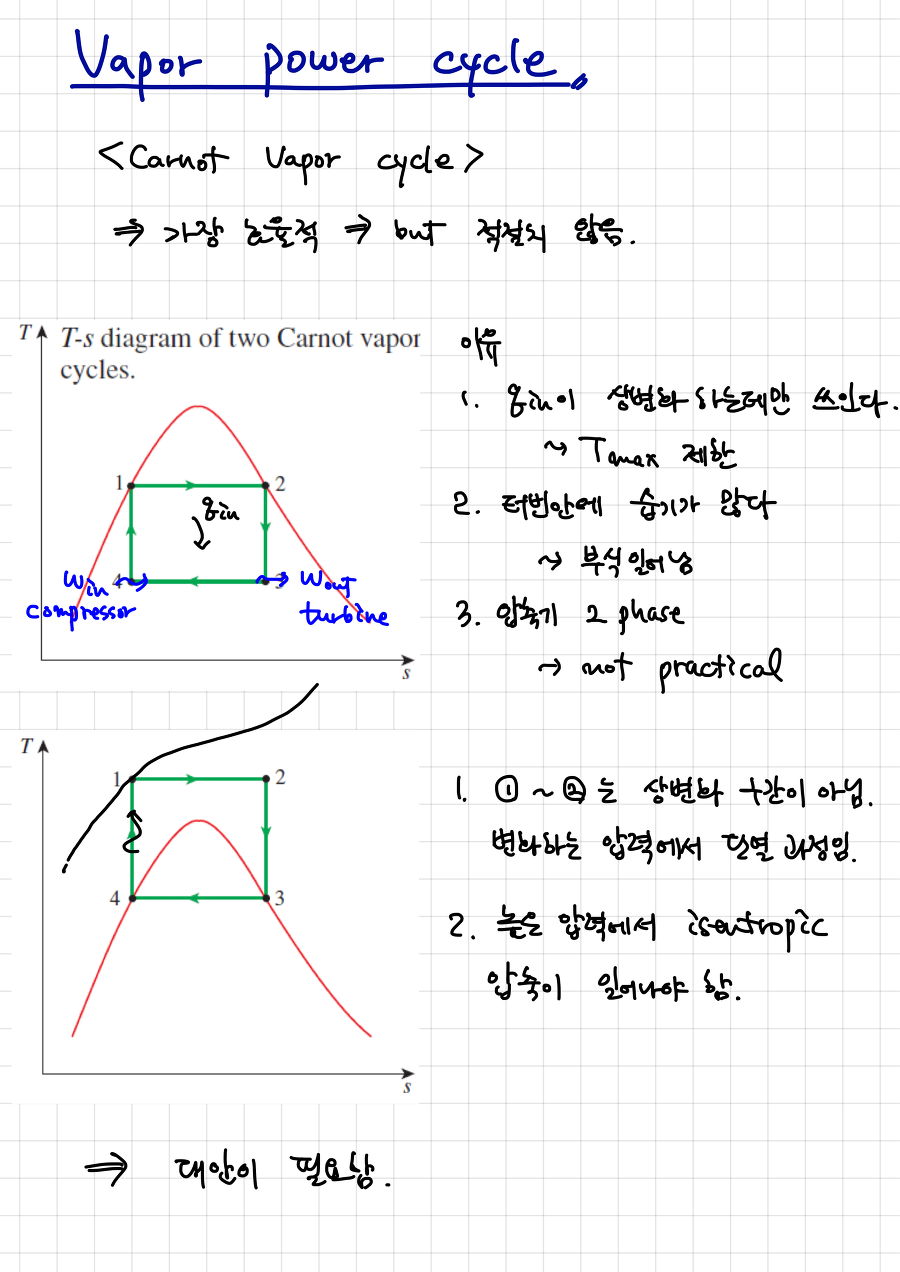 Vapor power cycle
<Carnot Vapor cycle>
⇒ 가장 효율적 ⇒ but 적절치 않음.
T
T-s diagram of two Carnot vapor
cycles.
1
2
qin
Win
4
3
Wout
compressor
turbine
s
이유
1. qin이 상변화 하는데만 쓰인다.
~> Tmax 제한
2. 터빈안에 습기가 많다
~> 부식일어남
3. 압축기 2 phase
~> not practical
T
1
2
4
3
s
1. ① ~ ② 는 상변화 구간이 아님.
변화하는 압력에서 단열 과정임.
2. 높은 압력에서 isentropic
압축이 일어나야 함.
⇒ 대안이 필요함.